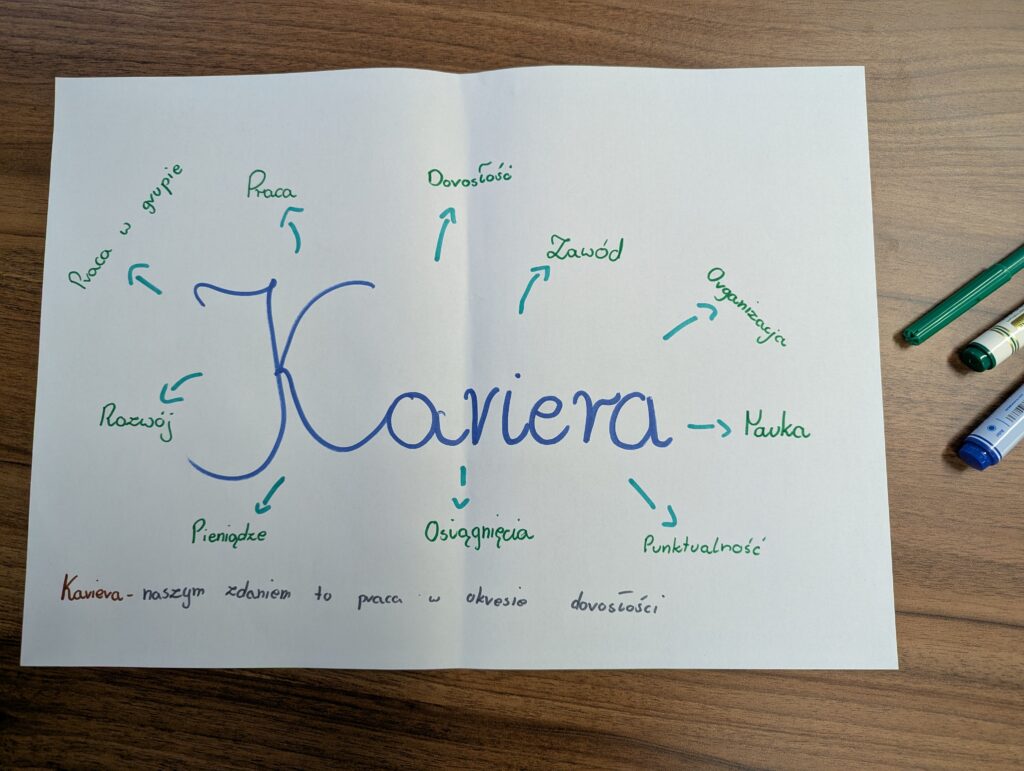 Praca w grupie
Praca
Dorosłość
Zawód
Organizacja
Kariera
Rozwój
Nauka
Pieniądze
Osiągnięcia
Punktualność
Kariera - naszym zdaniem to praca w okresie dorosłości